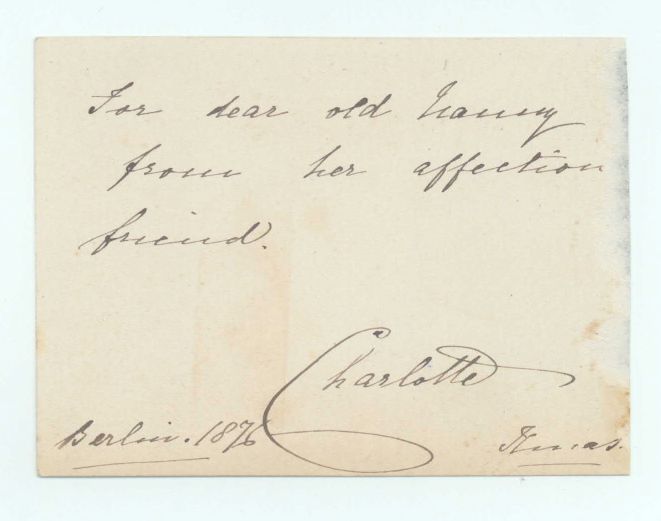 For dear old Nanny
from her affection
friend.
Charlotte
Berlin. 1876
Xmas.